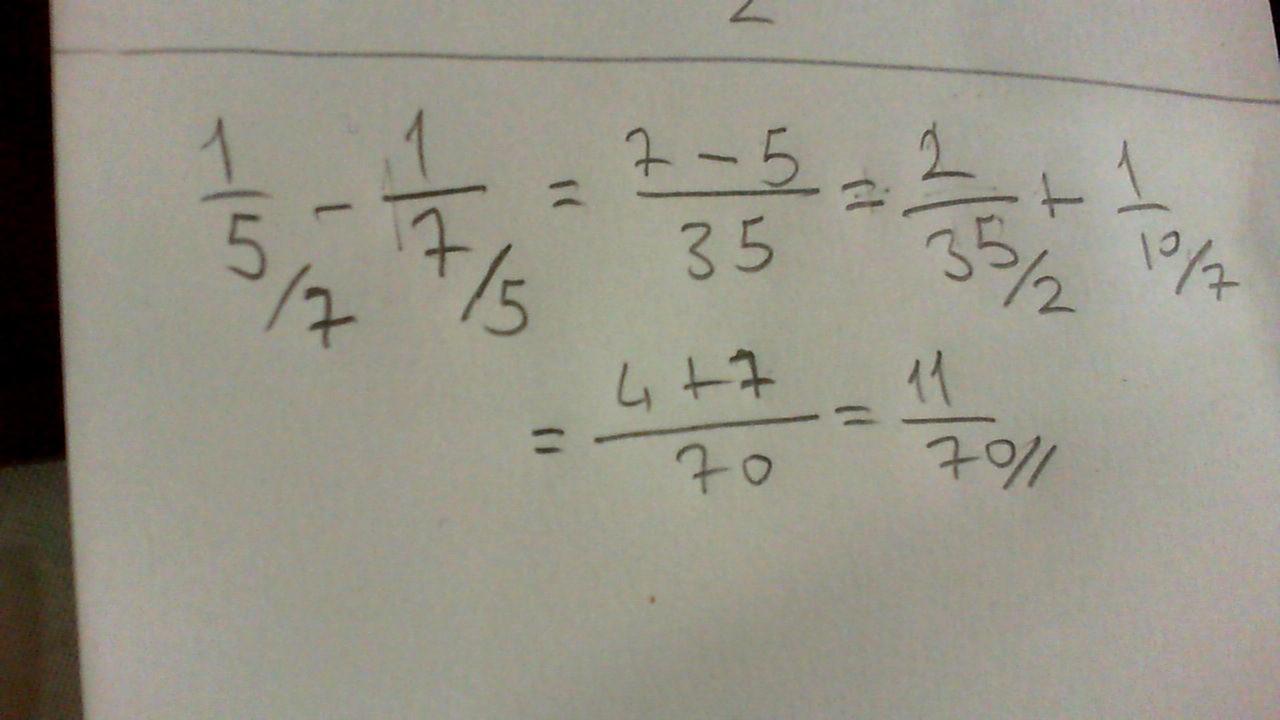 2
1/5 /7 - 1/7 /5 = (7 - 5)/35 = 2/35 /2 + 1/10 /7
= (4 + 7)/70 = 11/70 //